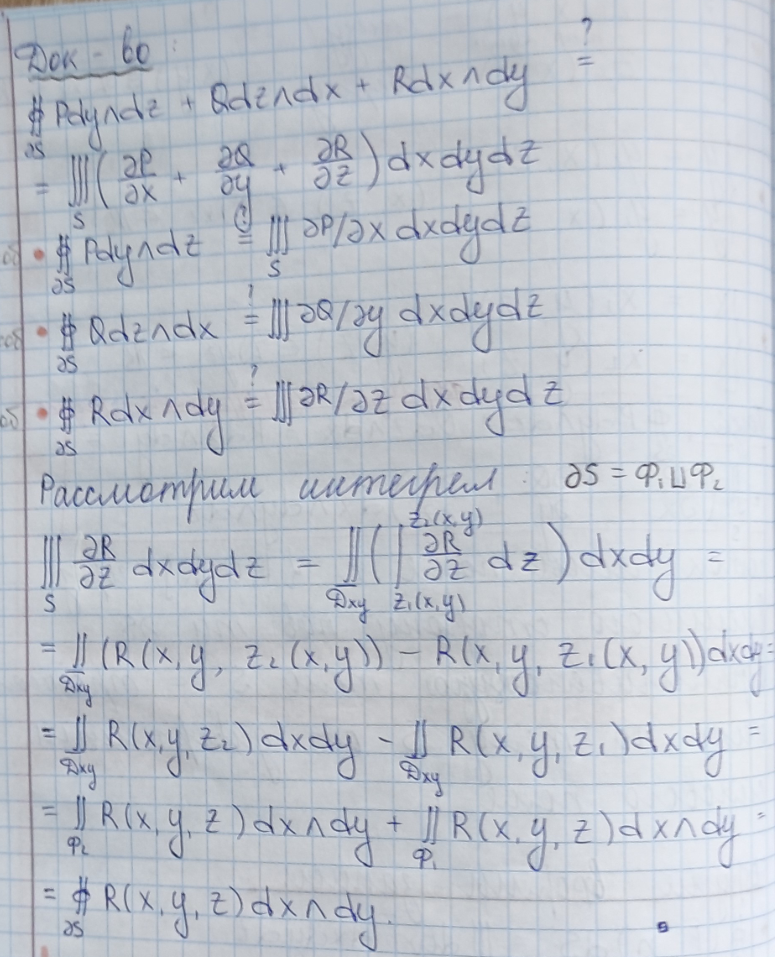 Док-во:
∯_{∂S} Pdy∧dz + Qdz∧dx + Rdx∧dy ?=
= ∭_S (∂P/∂x + ∂Q/∂y + ∂R/∂z) dxdydz
• ∯_{∂S} Pdy∧dz = ∭_S ∂P/∂x dxdydz
• ∯_{∂S} Qdz∧dx ?= ∭ ∂Q/∂y dxdydz
• ∯_{∂S} Rdx∧dy ?= ∭ ∂R/∂z dxdydz
Рассмотрим интеграл: ∂S = Ф₁⊔Ф₂
∭_S ∂R/∂z dxdydz = ∬_{Dxy} (∫_{z₁(x,y)}^{z₂(x,y)} ∂R/∂z dz) dxdy =
= ∬_{Dxy} (R(x,y, z₂(x,y)) − R(x,y, z₁(x,y)) dxdy =
= ∬_{Dxy} R(x,y,z₂) dxdy − ∬_{Dxy} R(x,y,z₁) dxdy =
= ∬_{Ф₂} R(x,y,z) dx∧dy + ∬_{Ф₁} R(x,y,z) dx∧dy =
= ∯_{∂S} R(x,y,z) dx∧dy.